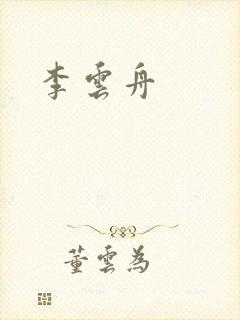 李雲舟
董雲為